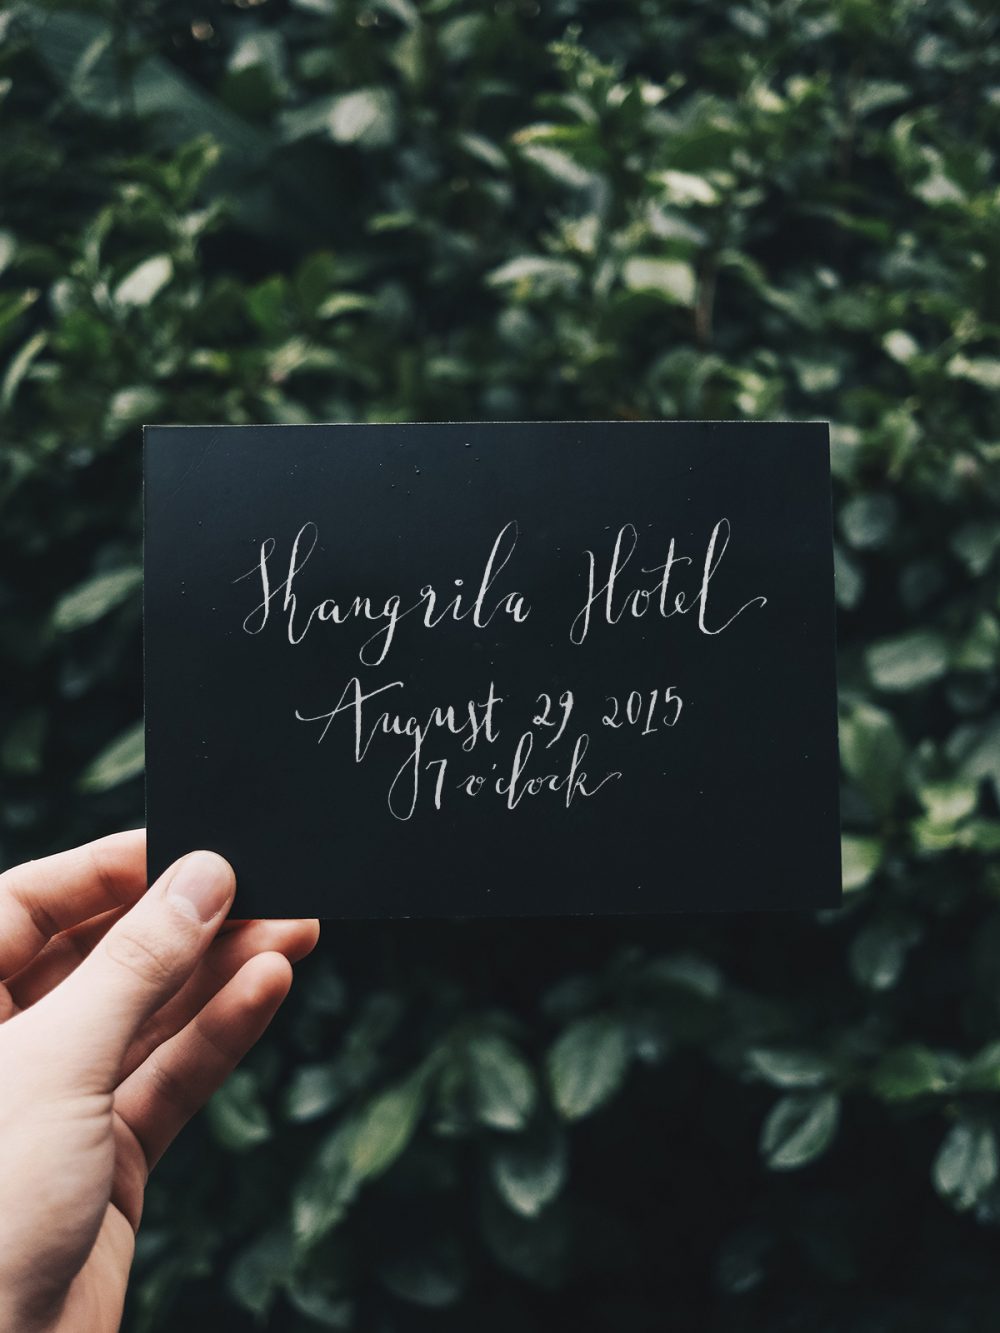 Shangrila Hotel
August 29 2015
7 o'clock